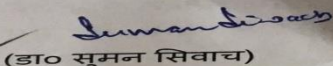 Suman Siwach
(डा० सुमन सिवाच)